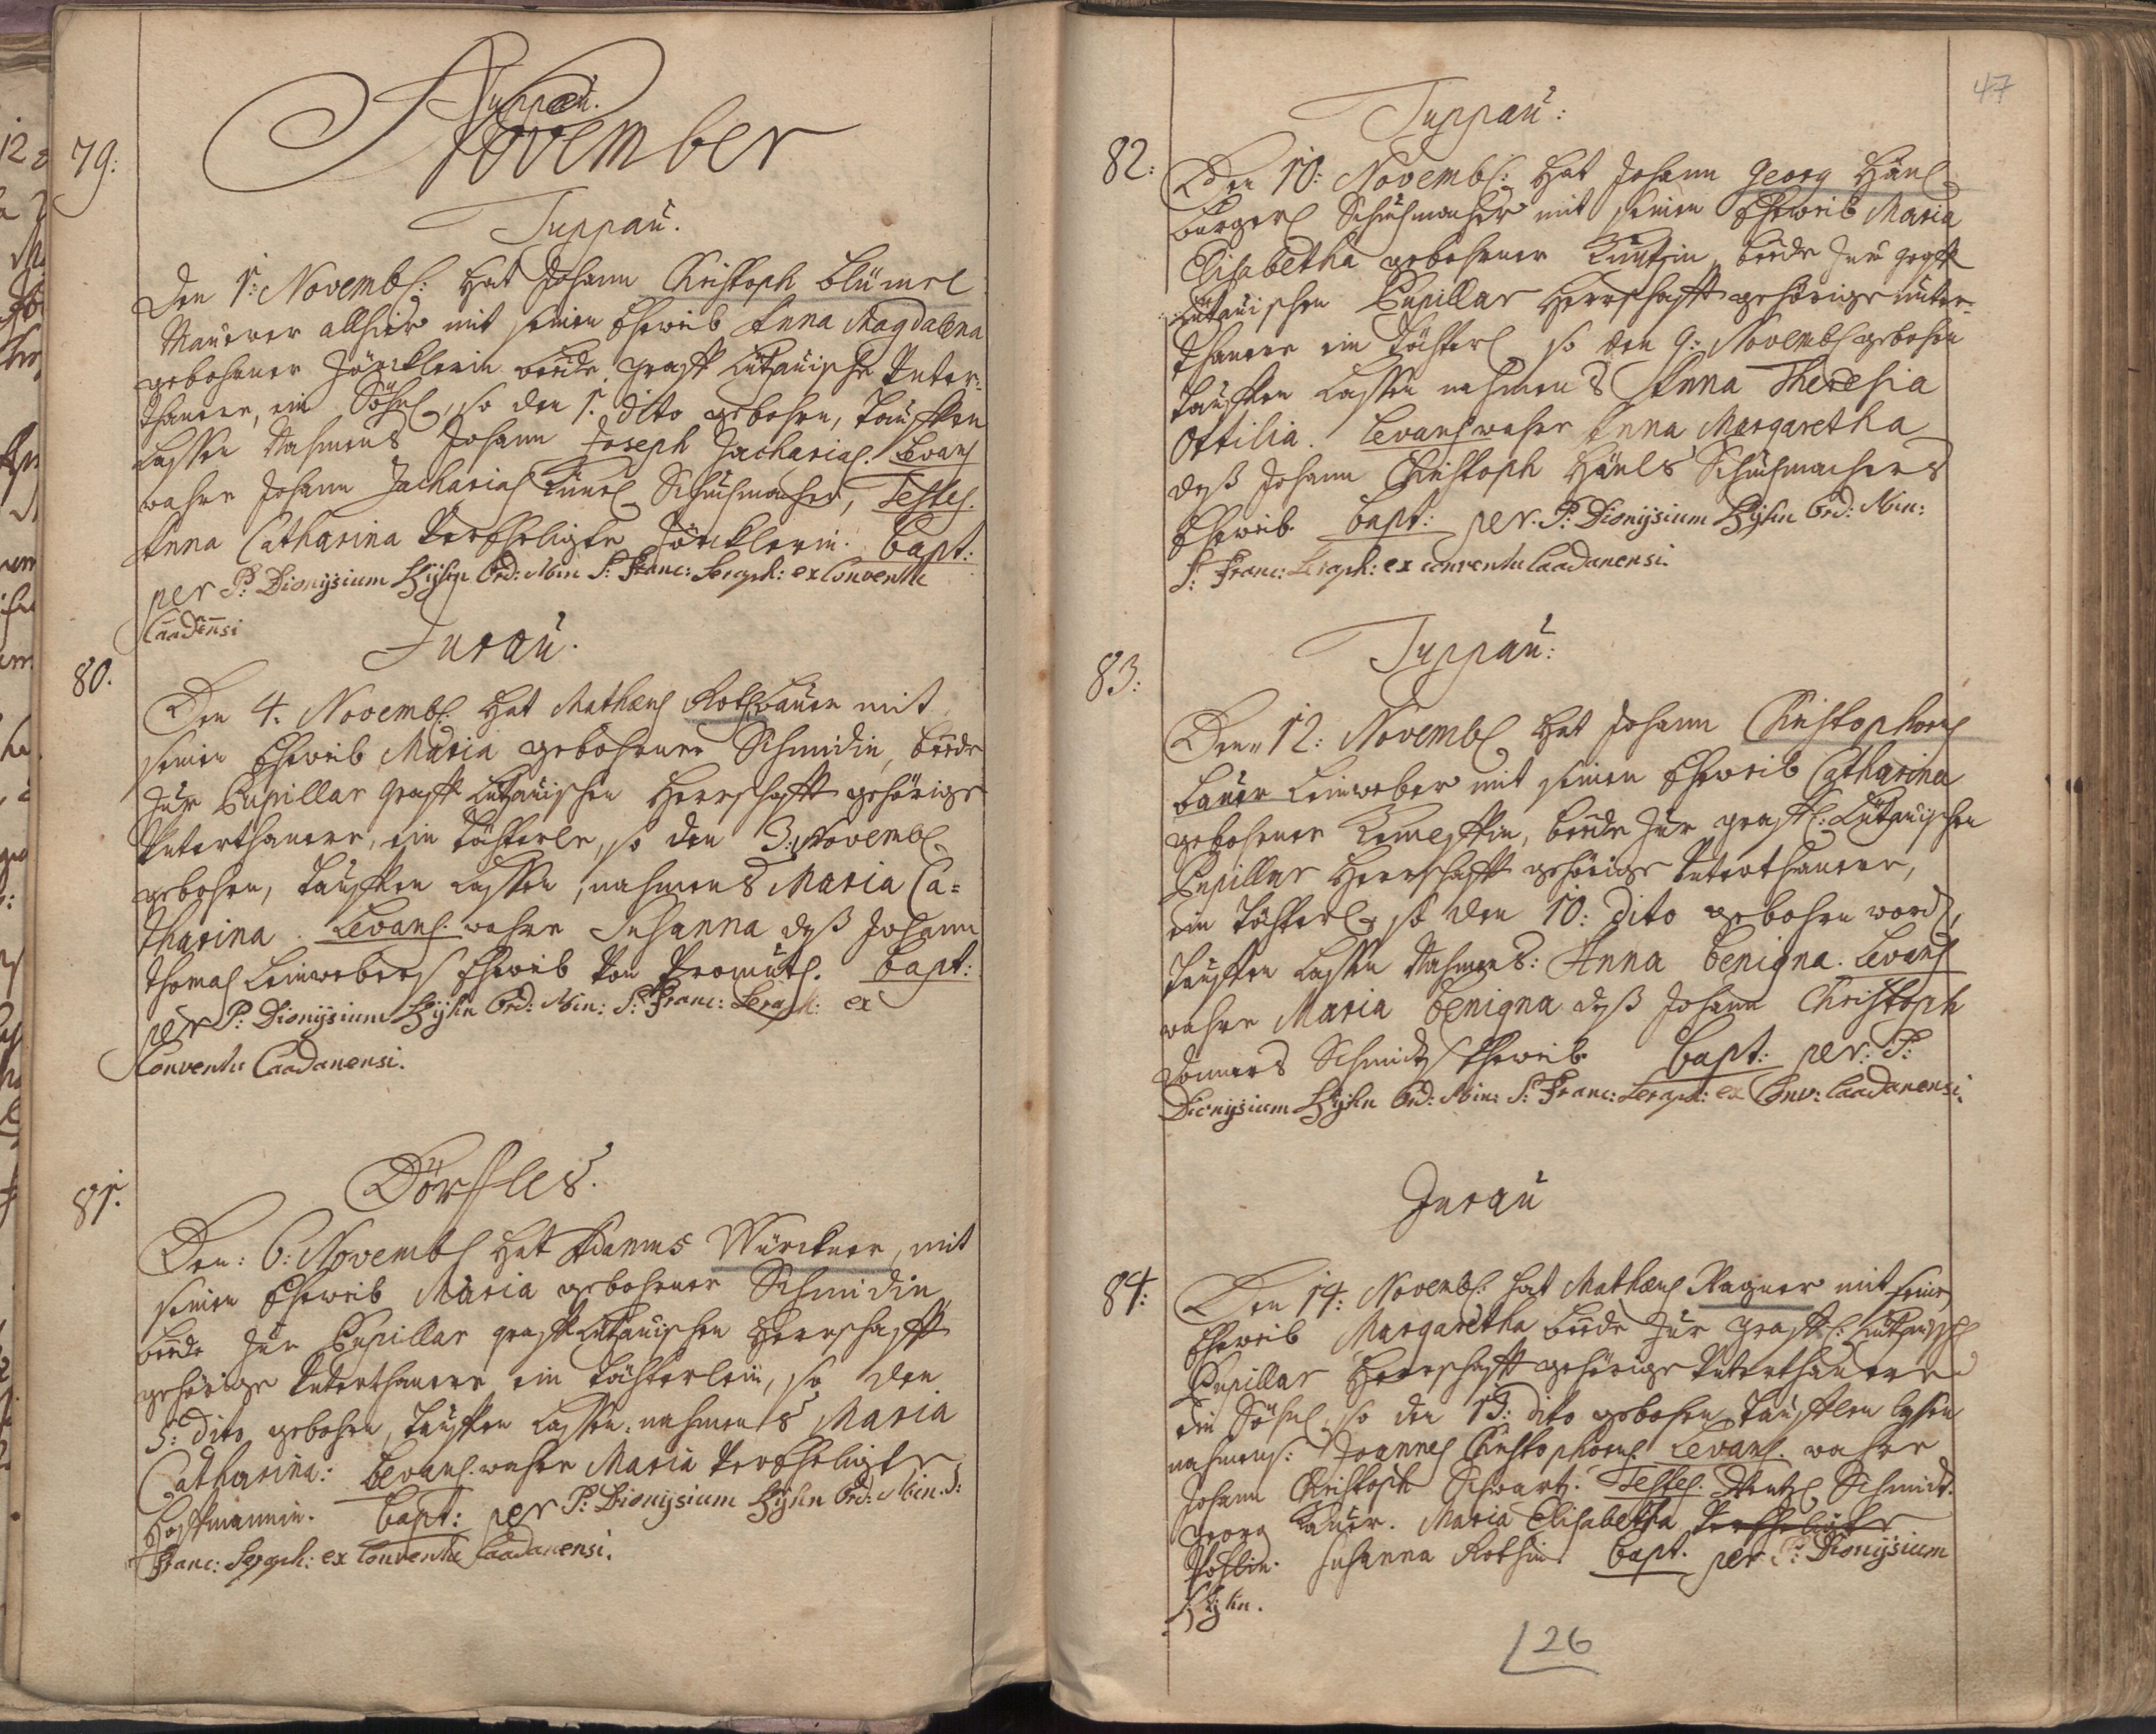 November
Tuppau.
79:
Tuppau.
Den 1: Novembr: hat Johann Christoph Blümel
Maurer allhier mit seinen Eheweib Anna Magdalena
gebohrner beede gräff Lützauische Unter-
thaner, ein Söhnl, so den 1. dito gebohrn, Tauffen
lassen Nahmens Johann Joseph Zacharias. Levans
wahre Johann Zacharias Schuhmacher, Testes.
Anna Catharina Verehligte Bapt:
per P: Dionysium Ord: Min S: Franc: Seraph: ex Conventu
Caadensi
80.
Jurau.
Den 4. Novembr: hat Mathæus Rothbauer mit
seinen Eheweib Maria gebohrner Schmidin, beede
zur Pupillar gräff Lützauischen Herrschafft gehörige
Unterthaner, ein Töchterle, so den 3. Novembr
gebohrn, Tauffen Lassen, nahmens Maria Ca=
tharina. Levans. wahre Susanna deß Johann
Thomas Leinwebers Eheweib Von Bapt:
per P: Dionysium Ord: Min: S: Franc: Seraph: ex
Conventu Caadanensi.
81.
Dörfles.
Den: 6: Novembr hat Adamus Würckner, mit
seinen Eheweib Maria gebohrner Schmidin
beede zur Pupillar gräff Lützauischen Herrschafft
gehörige Unterthaner ein Töchterlein, so den
5: dito gebohrn, Tauffen Lassen, nahmens Maria
Catharina: Levans. wahre Maria Verehligte
Hoffmannin. Bapt: per P: Dionysium Ord: Min. S:
Franc: Seraph: ex Conventu Caadanensi.
47
82:
Tuppau:
Den 10: Novembr: hat Johann Georg Hänl
burgerl Schuhmacher mit seinen Eheweib Maria
Elisabetha gebohrner beede zur gräff
Lützauischen Pupillar Herrschafft gehörige unter-
thaner ein Töchterl so den 9: Novembr gebohrn
Tauffen Lassen nahmens Anna Theresia
Ottilia. Levans wahre Anna Margaretha
deß Johann Christoph Hänls Schuhmachers
Eheweib Bapt: per. P: Dionysium Ord: Min:
S: Franc: Seraph: ex conventu Caadanensi.
83:
Tuppau:
Den 12: Novembr hat Johann Christophorus
Bauer Leinweber mit seinen Eheweib Catharina
gebohrner beede zur gräffl: Lützauischen
Pupillar Herrschafft gehörige Unterthaner,
ein Töchterl so den 10: dito gebohrn word,
Tauffen Lassen Nahmens: Anna Benigna. Levans
wahre Maria Benigna deß Johann Christoph
Schmidts Eheweib Bapt: per: P:
Dionysium Ord: Min: S: Franc: Seraph: ex Conv: Caadanensi.
Jurau
84:
Den 14: Novembr: hat Mathæus Wagner mit seine
Eheweib Margaretha beede zur gräffl: Lützauisch
Pupillar Herrschafft gehörige Unterthaner
ein Söhnl, so den 13: dito gebohrn Tauffen lassen
nahmens: Joannes Christophorus. Levans. wahre
Johann Christoph Schwartz. Testes. Schmidt.
Georg Bauer. Maria Elisabetha Verehligte
Susanna Rothin. Bapt. per P: Dionysium
26